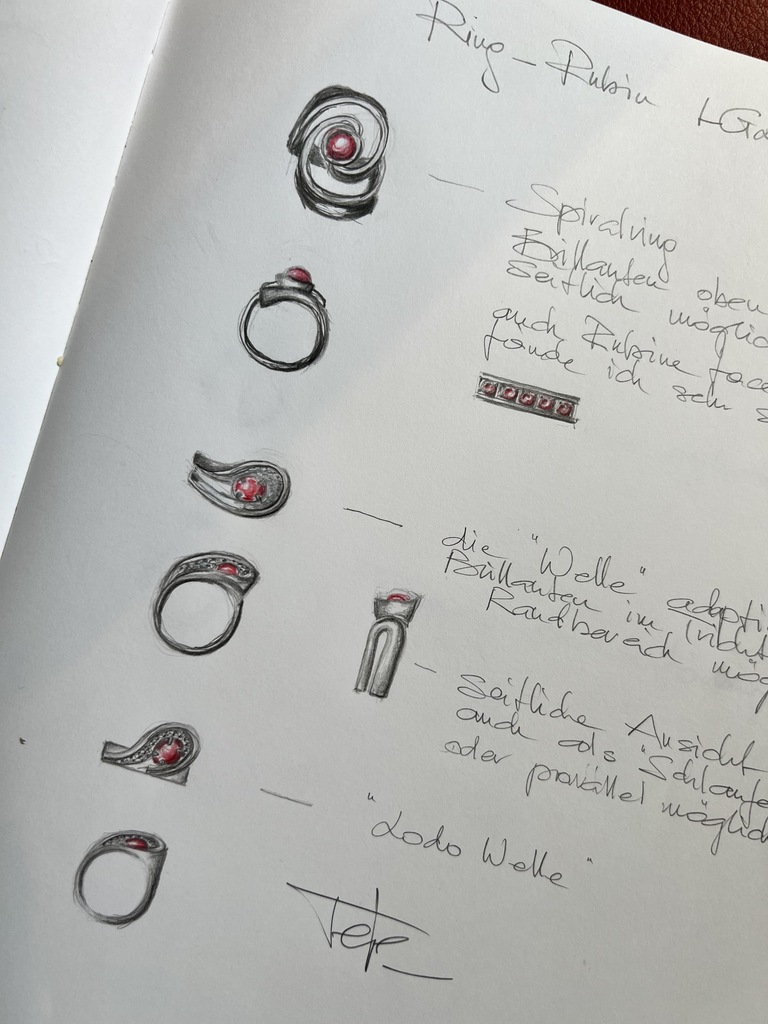 Ring - Rubin
Spiralring
Brillanten oben
seitlich möglic
auch Rubine face
fände ich sehr s
die "Welle" adapti
Brillanten im
Randbereich mög
seitliche Ansicht
auch als "Schlaufe
oder parallel möglich
"Lodo Welle"